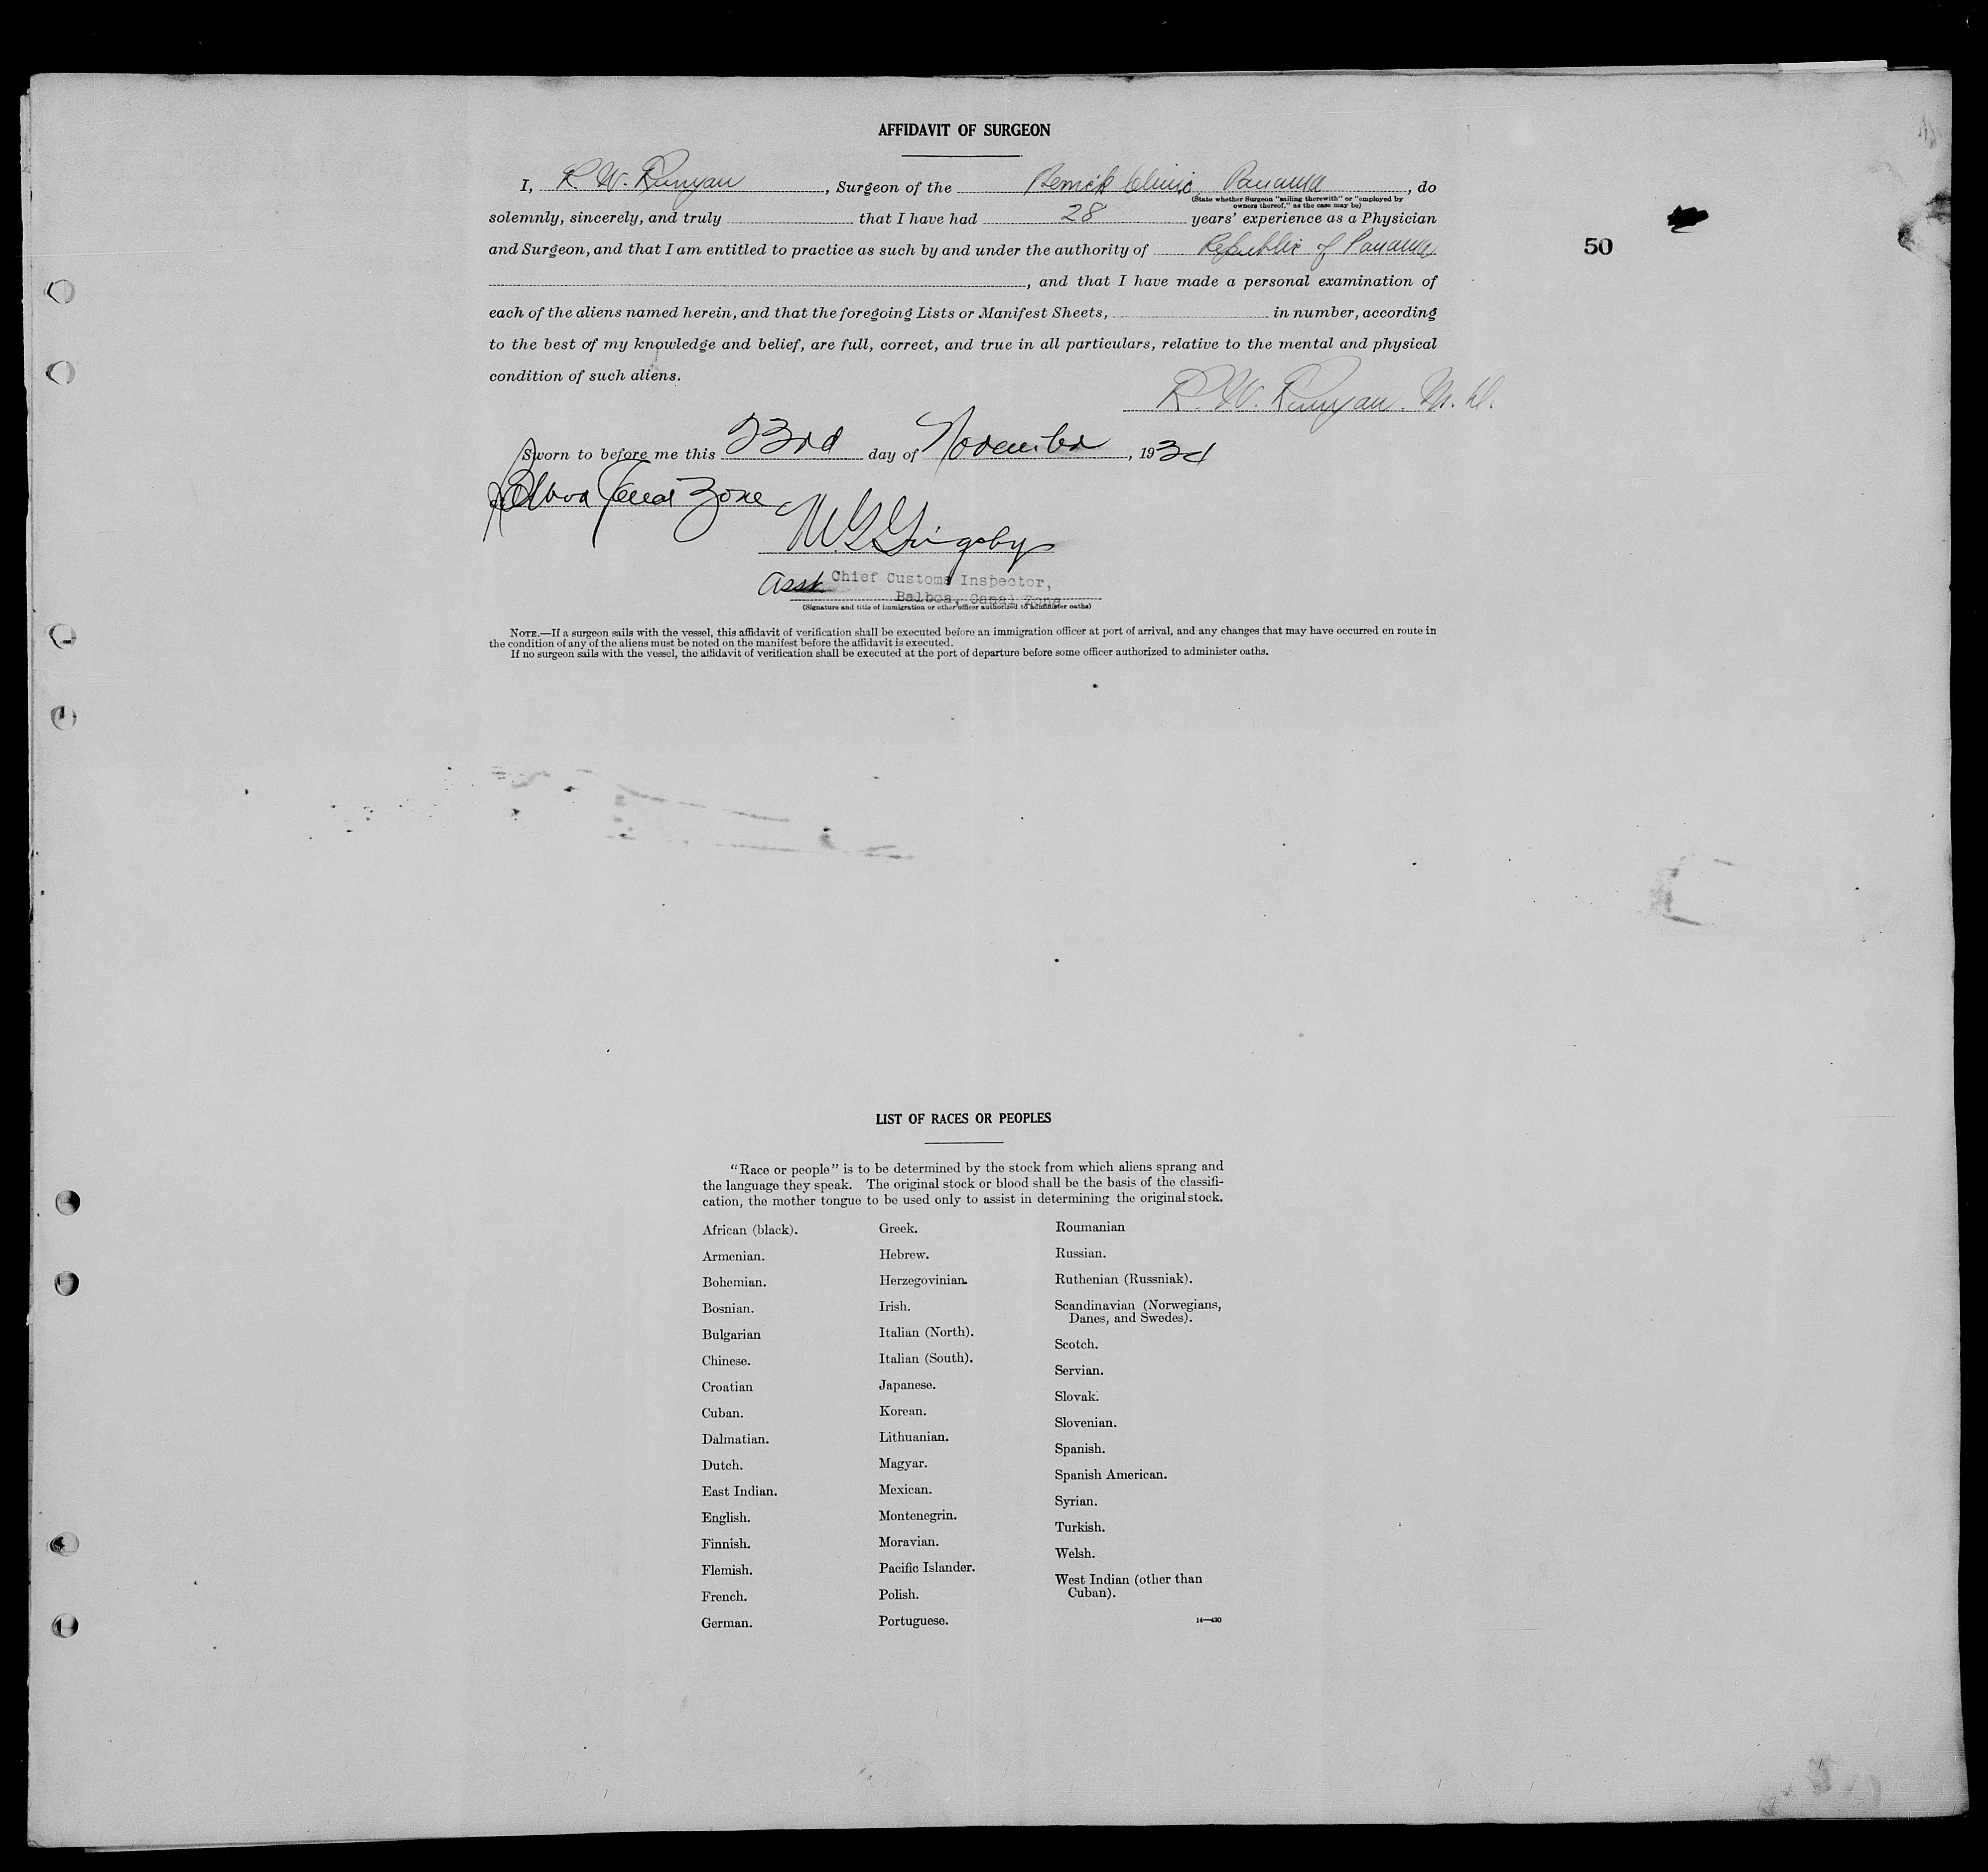 AFFIDAVIT OF SURGEON
I, R. W. Runyan, Surgeon of the Clinic, Panama, do
(State whether Surgeon "sailing therewith" or "employed by
owners thereof," as the case may be)
solemnly, sincerely, and truly that I have had 28 years' experience as a Physician
and Surgeon, and that I am entitled to practice as such by and under the authority of Republic of Panama
50
, and that I have made a personal examination of
each of the aliens named herein, and that the foregoing Lists or Manifest Sheets, in number, according
to the best of my knowledge and belief, are full, correct, and true in all particulars, relative to the mental and physical
condition of such aliens.
R. W. Runyan. M. D.
Sworn to before me this 23rd day of November, 193
Balboa Canal Zone
Asst Chief Customs Inspector,
Balboa, Canal Zone
(Signature and title of immigration or other officer authorized to administer oaths)
NOTE.—If a surgeon sails with the vessel, this affidavit of verification shall be executed before an immigration officer at port of arrival, and any changes that may have occurred en route in
the condition of any of the aliens must be noted on the manifest before the affidavit is executed.
If no surgeon sails with the vessel, the affidavit of verification shall be executed at the port of departure before some officer authorized to administer oaths.
LIST OF RACES OR PEOPLES
"Race or people" is to be determined by the stock from which aliens sprang and
the language they speak. The original stock or blood shall be the basis of the classifi-
cation, the mother tongue to be used only to assist in determining the original stock.
African (black).
Armenian.
Bohemian.
Bosnian.
Bulgarian
Chinese.
Croatian
Cuban.
Dalmatian.
Dutch.
East Indian.
English.
Finnish.
Flemish.
French.
German.
Greek.
Hebrew.
Herzegovinian.
Irish.
Italian (North).
Italian (South).
Japanese.
Korean.
Lithuanian.
Magyar.
Mexican.
Montenegrin.
Moravian.
Pacific Islander.
Polish.
Portuguese.
Roumanian
Russian.
Ruthenian (Russniak).
Scandinavian (Norwegians,
Danes, and Swedes).
Scotch.
Servian.
Slovak.
Slovenian.
Spanish.
Spanish American.
Syrian.
Turkish.
Welsh.
West Indian (other than
Cuban).
14—430